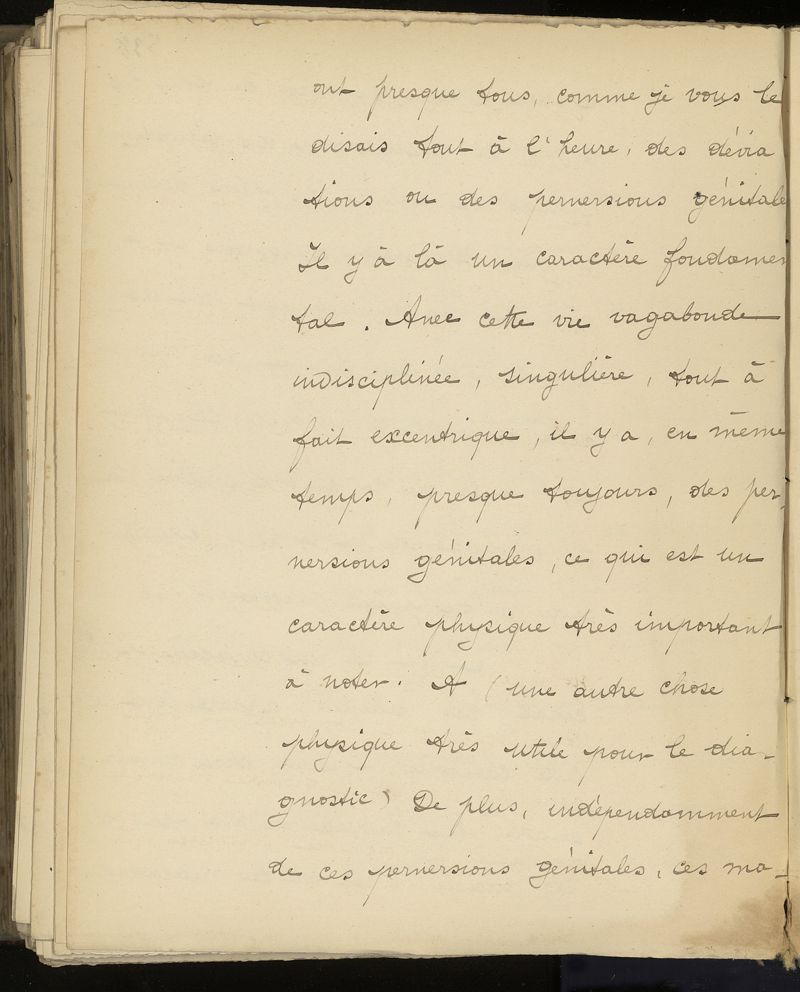 ont presque tous, comme je vous le
disais tout à l'heure, des dévia
tions ou des perversions génitale
Il y à là un caractère fondamen
tal. Avec cette vie vagabonde
indisciplinée, singulière, tout à
fait excentrique, il y a, en même
temps, presque toujours, des per-
versions génitales, ce qui est un
caractère physique très important
à noter. A (une autre chose
physique très utile pour le dia-
gnostic) De plus, indépendamment
de ces perversions génitales, ces ma-